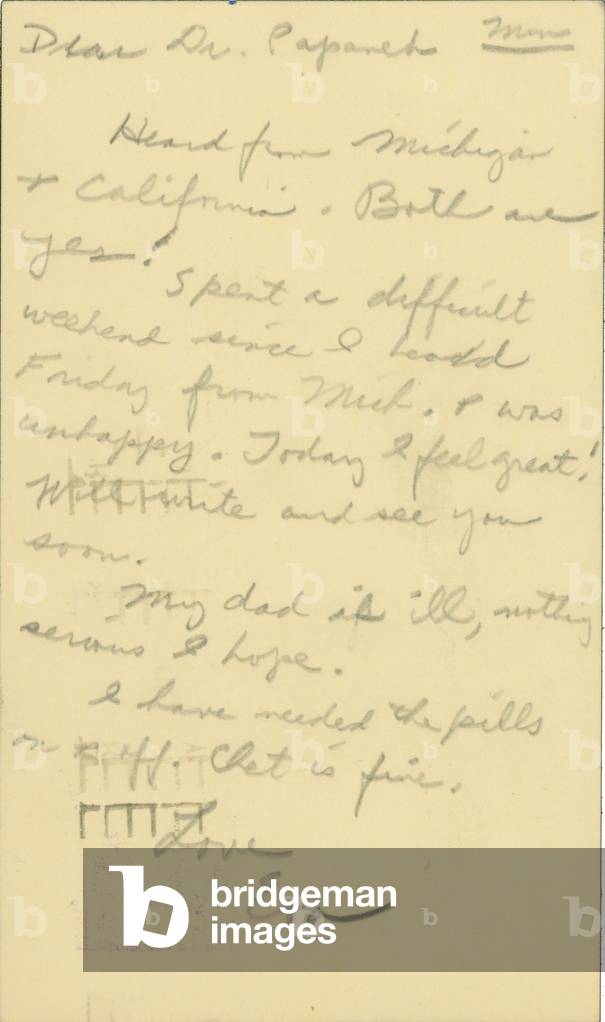 Dear Dr. Papanek Mon
Heard from Michigan
+ California. Both are
yes!
Spent a difficult
weekend since I heard
Friday from Mich. & was
unhappy. Today I feel great!
Will write and see you
soon.
My dad is ill, nothing
serious I hope.
I have needed the pills
on & off. Chet is fine.
Love
Eva
bridgeman
images